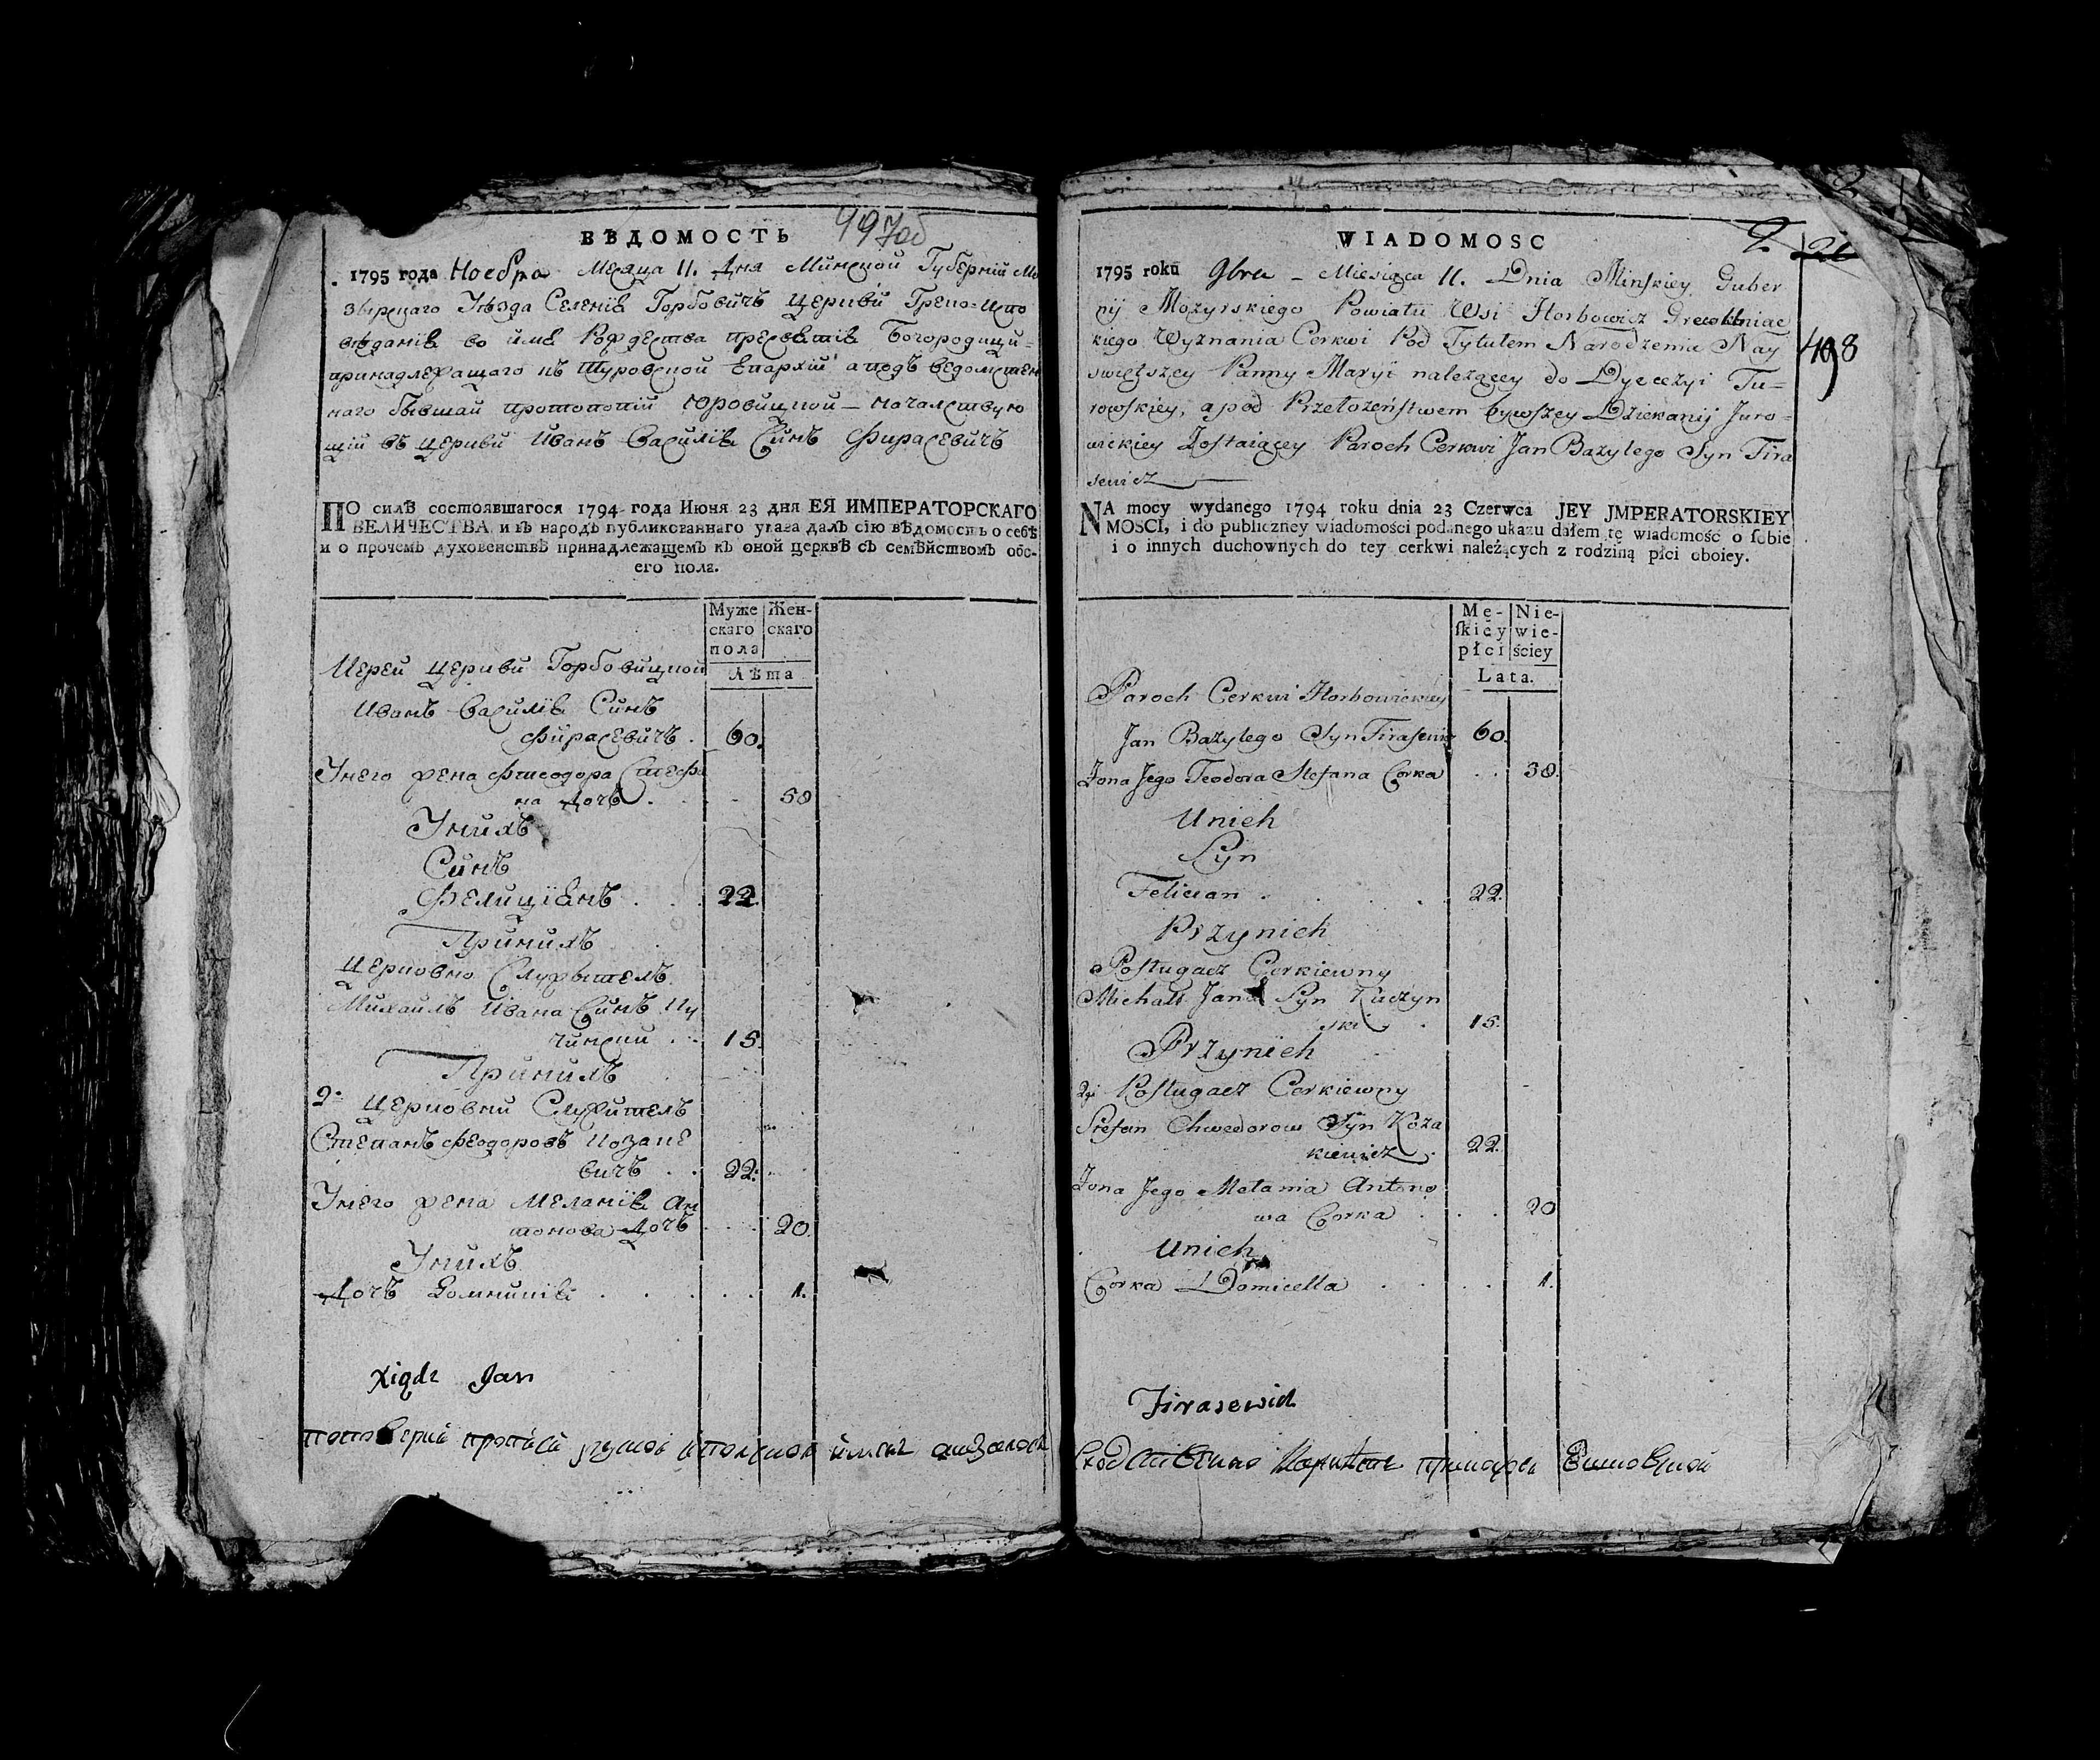 ВѢДОМОСТЬ 497об
1795 года Ноебра Месяца 11. Дня Минской Губернїи Мо
зырского Уѣзда Селенїѣ Горбовичъ Церкви Греко=Испо
веданїѣ во имѣ Рождества пресветїѣ Богородици=
принадлежащаго къ Туровской Епархїи а подъ ведомствен
наго бывшай протопопїи Юровицкой — началствую
щїи въ Церкви Иванъ Василїѣ Синъ Фирасевичъ
ПО силѣ состоявшагося 1794 года Июня 23 дня ЕЯ ИМПЕРАТОРСКАГО
ВЕЛИЧЕСТВА и въ народъ публикованнаго указа далъ сїю вѣдомость о себѣ
и о прочемъ духовенствѣ принадлежащемъ къ оной церквѣ съ семѣйствомъ обо-
его пола.
Муже Жен-
скаго скаго
пола
Лѣта
Иерей Церкви Горбовицкой
Иванъ Василїѣ Синъ
Фирасевичъ . 60.
Унего жена Фтеодора Стефа
на Дочъ . 58
Унихъ
Синъ
Фелицїѣнъ . . . 22.
Принихъ
Церковно Служытелъ
Михаилъ Ивана Синъ Ку
чински . . 15.
Принихъ
2. Церковни Служителъ
Степанъ Феодоровъ Козаке
вичъ . . 22.
Унего жена Меланїѣ Ан
тонова Дочъ . . . 20.
Унихъ
Дочъ Домницїѣ . . . . . 1.
Xiądz Jan
WIADOMOSC 2 21
1795 roku 9bra – Miesiąca 11. Dnia Minskiey Guber
nij Mozyrskiego Powiatu Wsi Horbowicz
498
kiego Wyznania Cerkwi Pod Tytułem Narodzenia Nay
swiętszey Panny Maryi nalezącey do Dyecezyi Tu=
rowskiey, a pod Przełożeństwem bywszey Dziekanij Juro=
wickiey Zostaiącey Paroch Cerkwi Jan Bazylego Syn Fira
sewicz
NA mocy wydanego 1794 roku dnia 23 Czerwca JEY JMPERATORSKIEY
MOSCI, i do publiczney wiadomości podanego ukazu dałem tę wiadomość o sobie
i o innych duchownych do tey cerkwi należących z rodziną płci oboiey.
Mę- Nie-
skiey wie-
płci ściey
Lata.
Paroch Cerkwi Horbowickiey
Jan Bazylego Syn Firasewicz 60.
Zona Jego Teodora Stefana Corka . . 38.
Unich
Syn
Felician . . . 22.
Przynich
Posługacz Cerkiewny
Michał Jana Syn Kuczyn
ski . 15.
Przynich
2gi Posługacz Cerkiewny
Stefan Chwedorow Syn Koza
kiewicz . 22.
Zona Jego Mełania Antono
wa Corka . . . 20
Unich
Corka Domicella . . . . 1.
Firasewicz